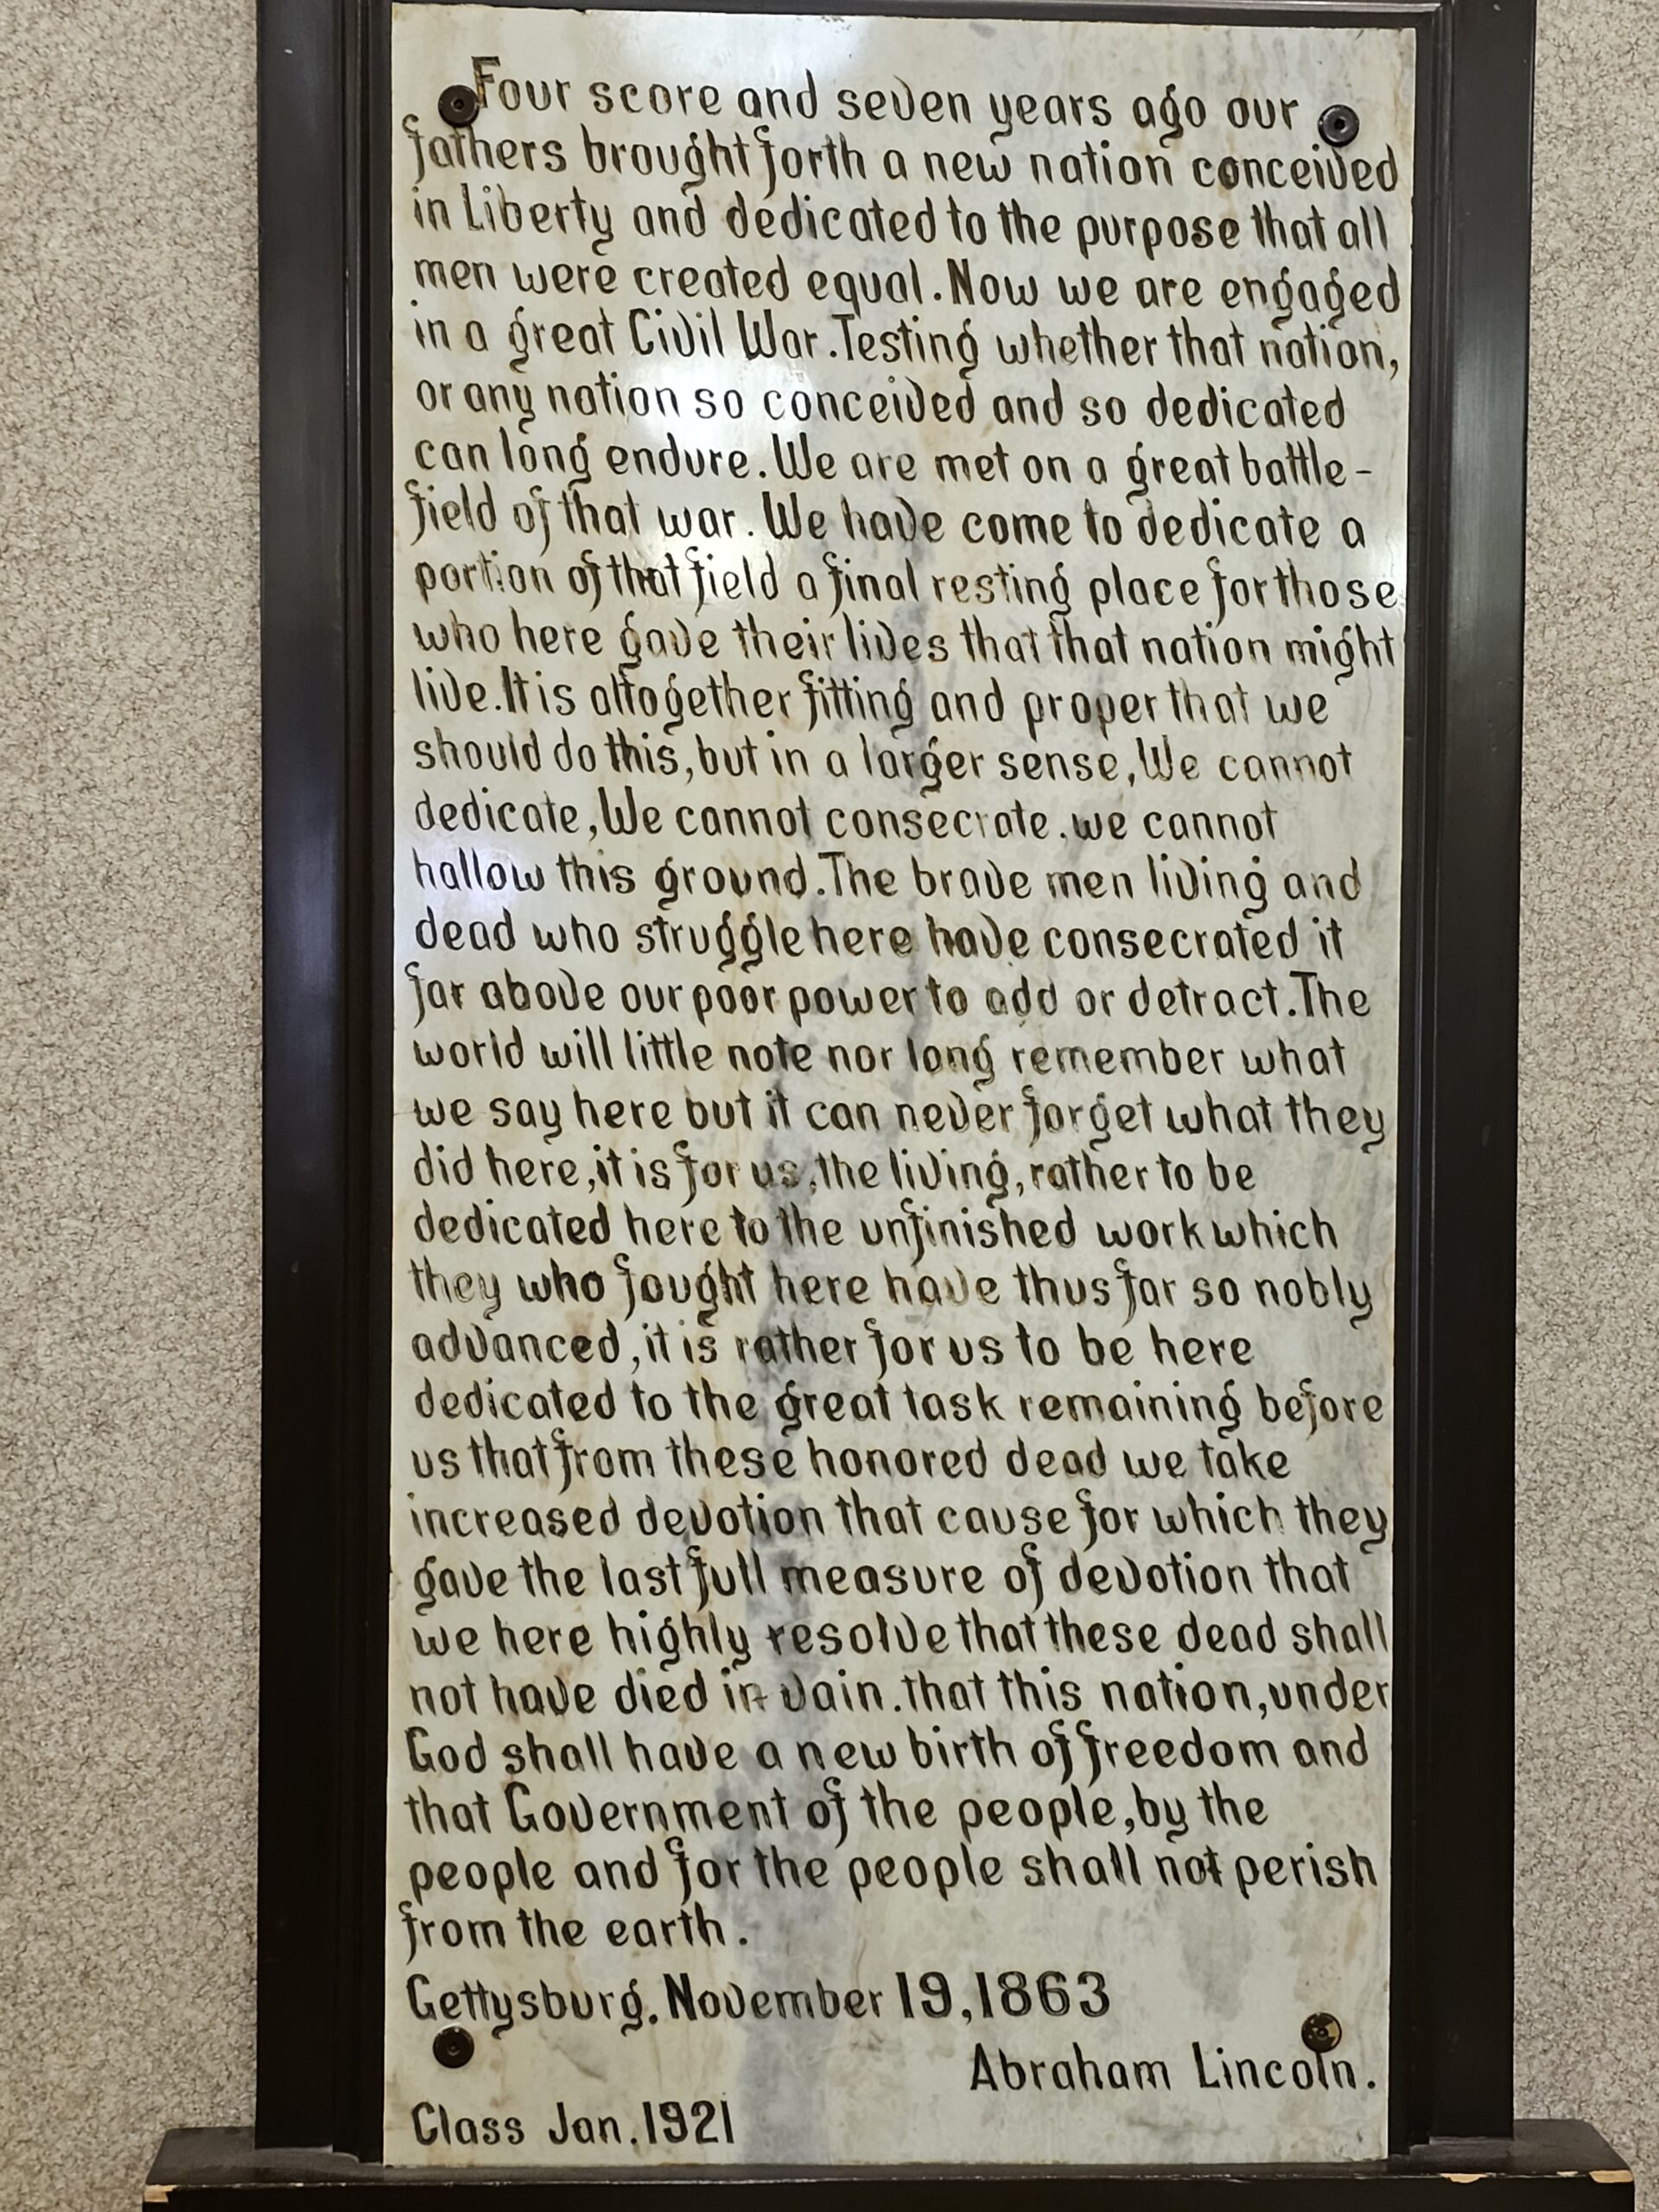 Four score and seven years ago our
fathers brought forth a new nation conceived
in Liberty and dedicated to the purpose that all
men were created equal. Now we are engaged
in a great Civil War. Testing whether that nation,
or any nation so conceived and so dedicated
can long endure. We are met on a great battle-
field of that war. We have come to dedicate a
portion of that field a final resting place for those
who here gave their lives that that nation might
live. It is altogether fitting and proper that we
should do this, but in a larger sense, We cannot
dedicate, We cannot consecrate. we cannot
hallow this ground. The brave men living and
dead who struggle here have consecrated it
far above our poor power to add or detract. The
world will little note nor long remember what
we say here but it can never forget what they
did here, it is for us, the living, rather to be
dedicated here to the unfinished work which
they who fought here have thus far so nobly
advanced, it is rather for us to be here
dedicated to the great task remaining before
us that from these honored dead we take
increased devotion that cause for which they
gave the last full measure of devotion that
we here highly resolve that these dead shall
not have died in vain. that this nation, under
God shall have a new birth of freedom and
that Government of the people, by the
people and for the people shall not perish
from the earth.
Gettysburg. November 19, 1863
Abraham Lincoln.
Class Jan. 1921